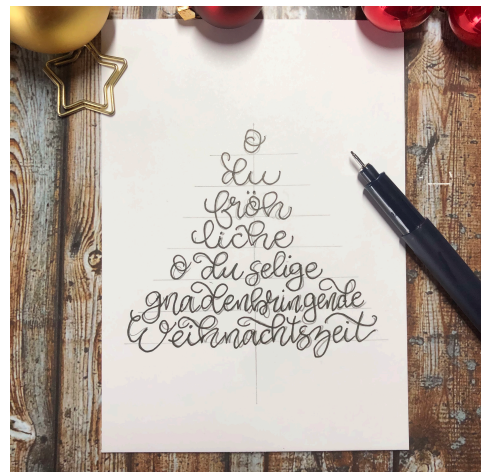 O
du
fröh
liche
o du selige
gnadenbringende
Weihnachtszeit